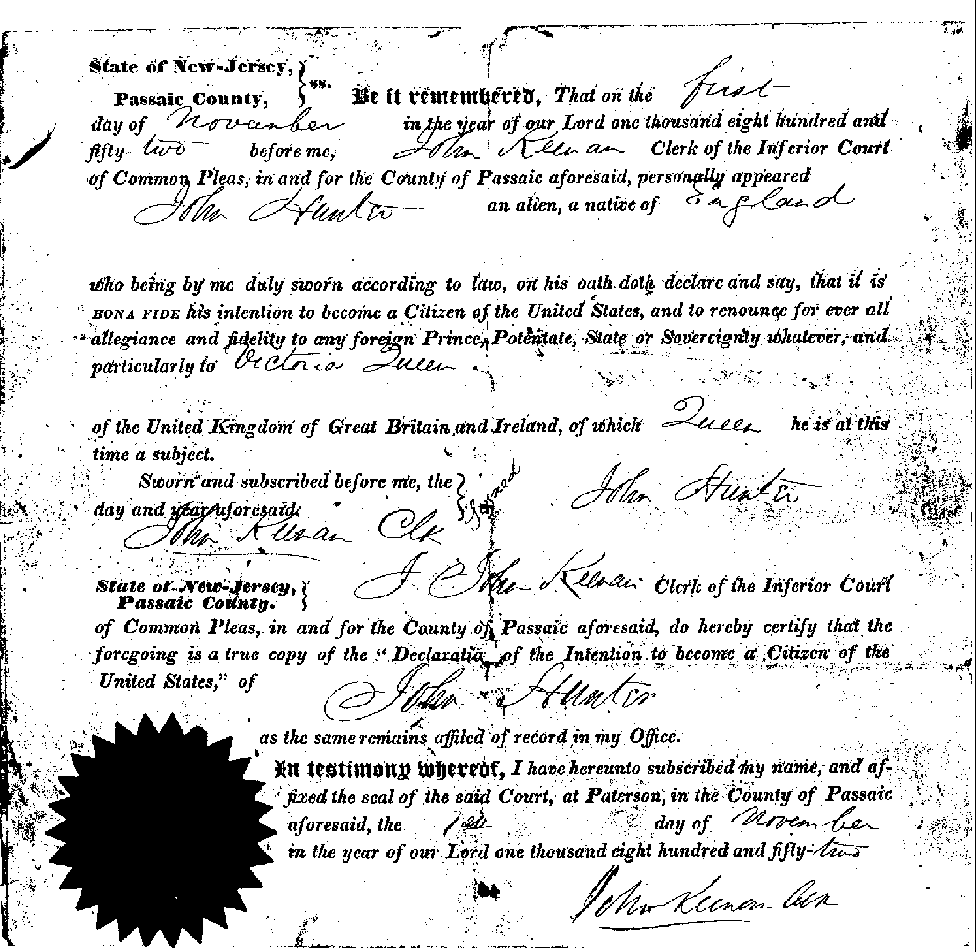 State of New-Jersey,
Passaic County, ss. Be it remembered, That on the first
day of November in the year of our Lord one thousand eight hundred and
fifty two before me, John Keenan Clerk of the Inferior Court
of Common Pleas, in and for the County of Passaic aforesaid, personally appeared
John Hunter an alien, a native of England
who being by me duly sworn according to law, on his oath doth declare and say, that it is
BONA FIDE his intention to become a Citizen of the United States, and to renounce for ever all
allegiance and fidelity to any foreign Prince, Potentate, State or Sovereignty whatever, and
particularly to Victoria Queen
of the United Kingdom of Great Britain and Ireland, of which Queen he is at this
time a subject.
Sworn and subscribed before me, the
day and year aforesaid. Signed John Hunter
John Keenan Clk
State of New-Jersey,
Passaic County. I John Keenan Clerk of the Inferior Court
of Common Pleas, in and for the County of Passaic aforesaid, do hereby certify that the
foregoing is a true copy of the "Declaratio of the Intention to become a Citizen of the
United States," of John Hunter
as the same remains affiled of record in my Office.
In testimony whereof, I have hereunto subscribed my name, and af-
fixed the seal of the said Court, at Paterson, in the County of Passaic
aforesaid, the day of November
in the year of our Lord one thousand eight hundred and fifty-two
John Keenan Clk